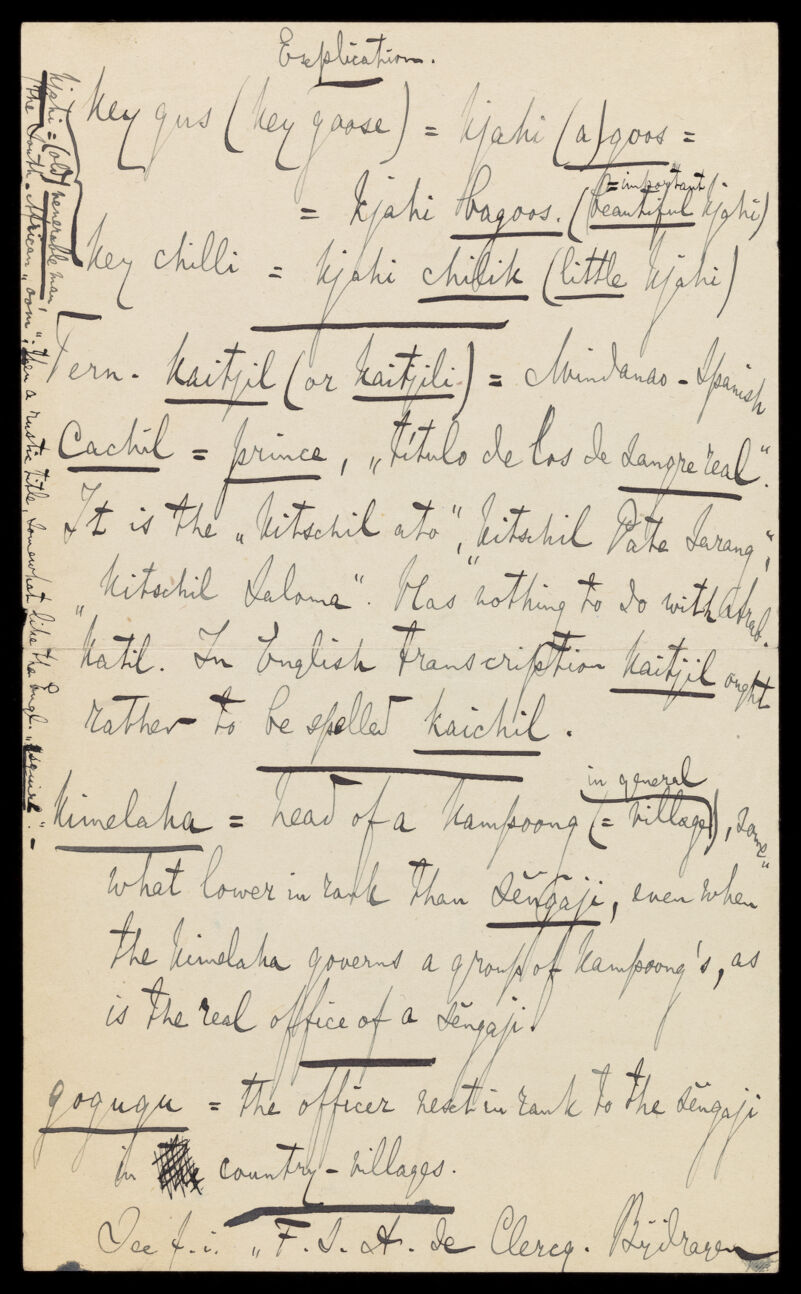 Explication.
Key gus (key goose) = kjahi (a)goos =
= important
= kjahi bagoos. (beautiful kjahi)
Key chilli = kjahi chilik (little kjahi)
Tern. Kaitjil (or Kaitjili) = Mindanao-Spanish
Cachil = prince, „título de los de sangre real“.
It is the „Kitschil ato“, „Kitschil Pate Sarang“,
„Kitschil Saloma“. Has nothing to do with Arab.
Katil. In English transcription Kaitjil ought
rather to be spelled kaichil.
in general
Kimelaha = head of a Kampoong (= village), some„
what lower in rank than sĕngaji, even when
the kimelaha governs a group of Kampoong's, as
is the real office of a sĕngaji.
gogugu = the officer next in rank to the sĕngaji
in country-villages.
See f.i. „F. S. A. de Clercq. Bijdragen
kjahi = (old) venerable man,
(the South-African „oom“; then a rustic title, somewhat like the Engl. „squire“.-